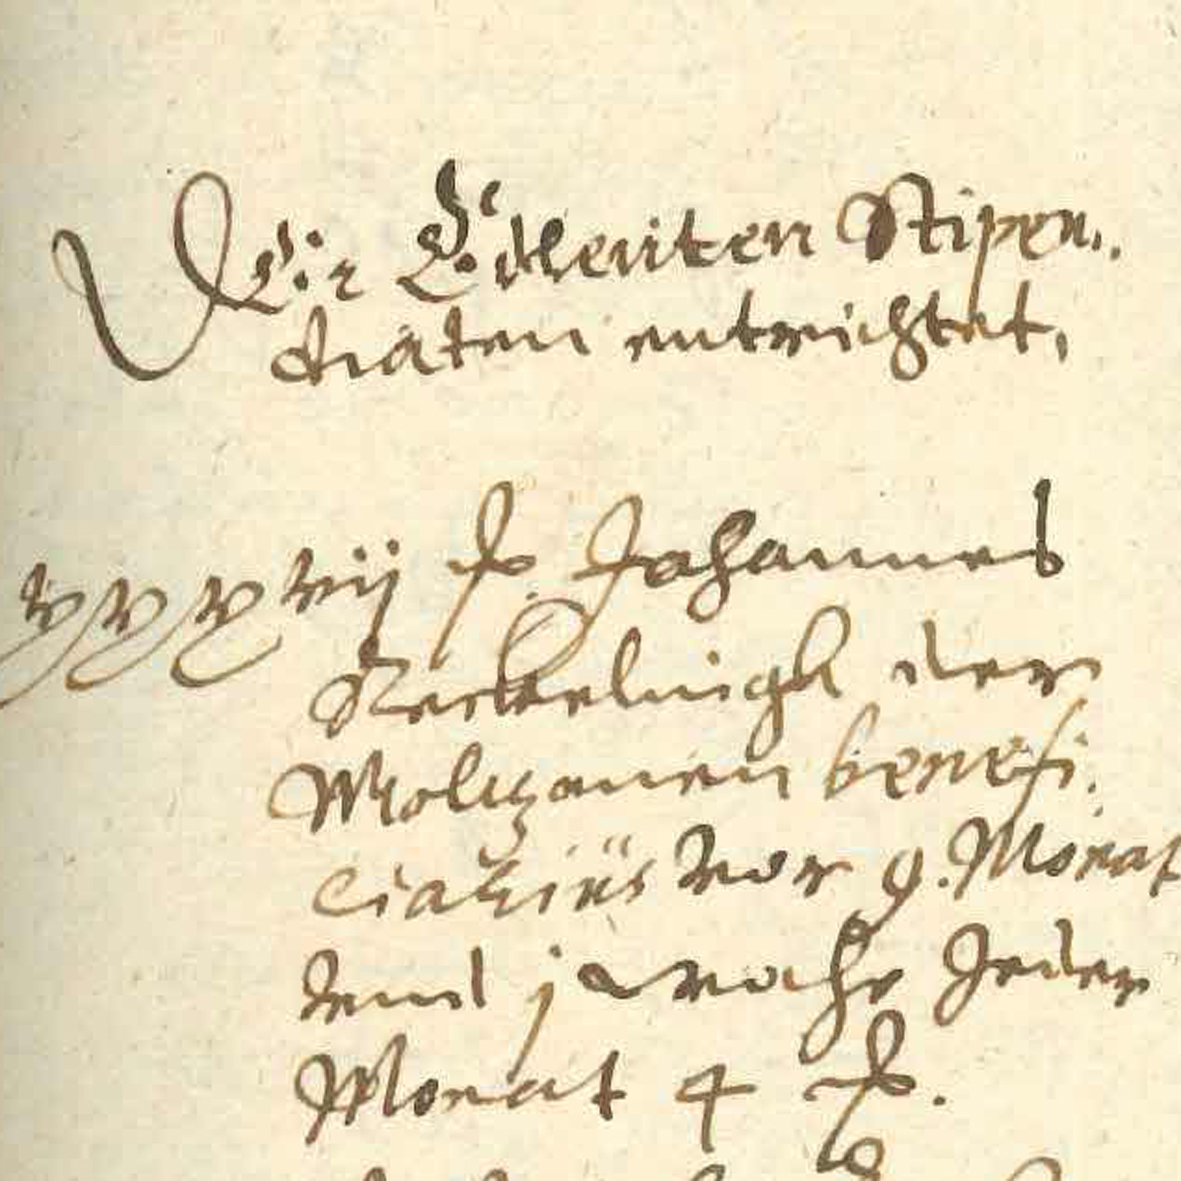 Die Edlenten Stipen¬
diaten entrichtet,
xxxvij f. Johannes
Reckelingk der
Moltzanen benefi¬
ciatius vor 9. Monat
vnd j woche Jeder
Monat 4 f.